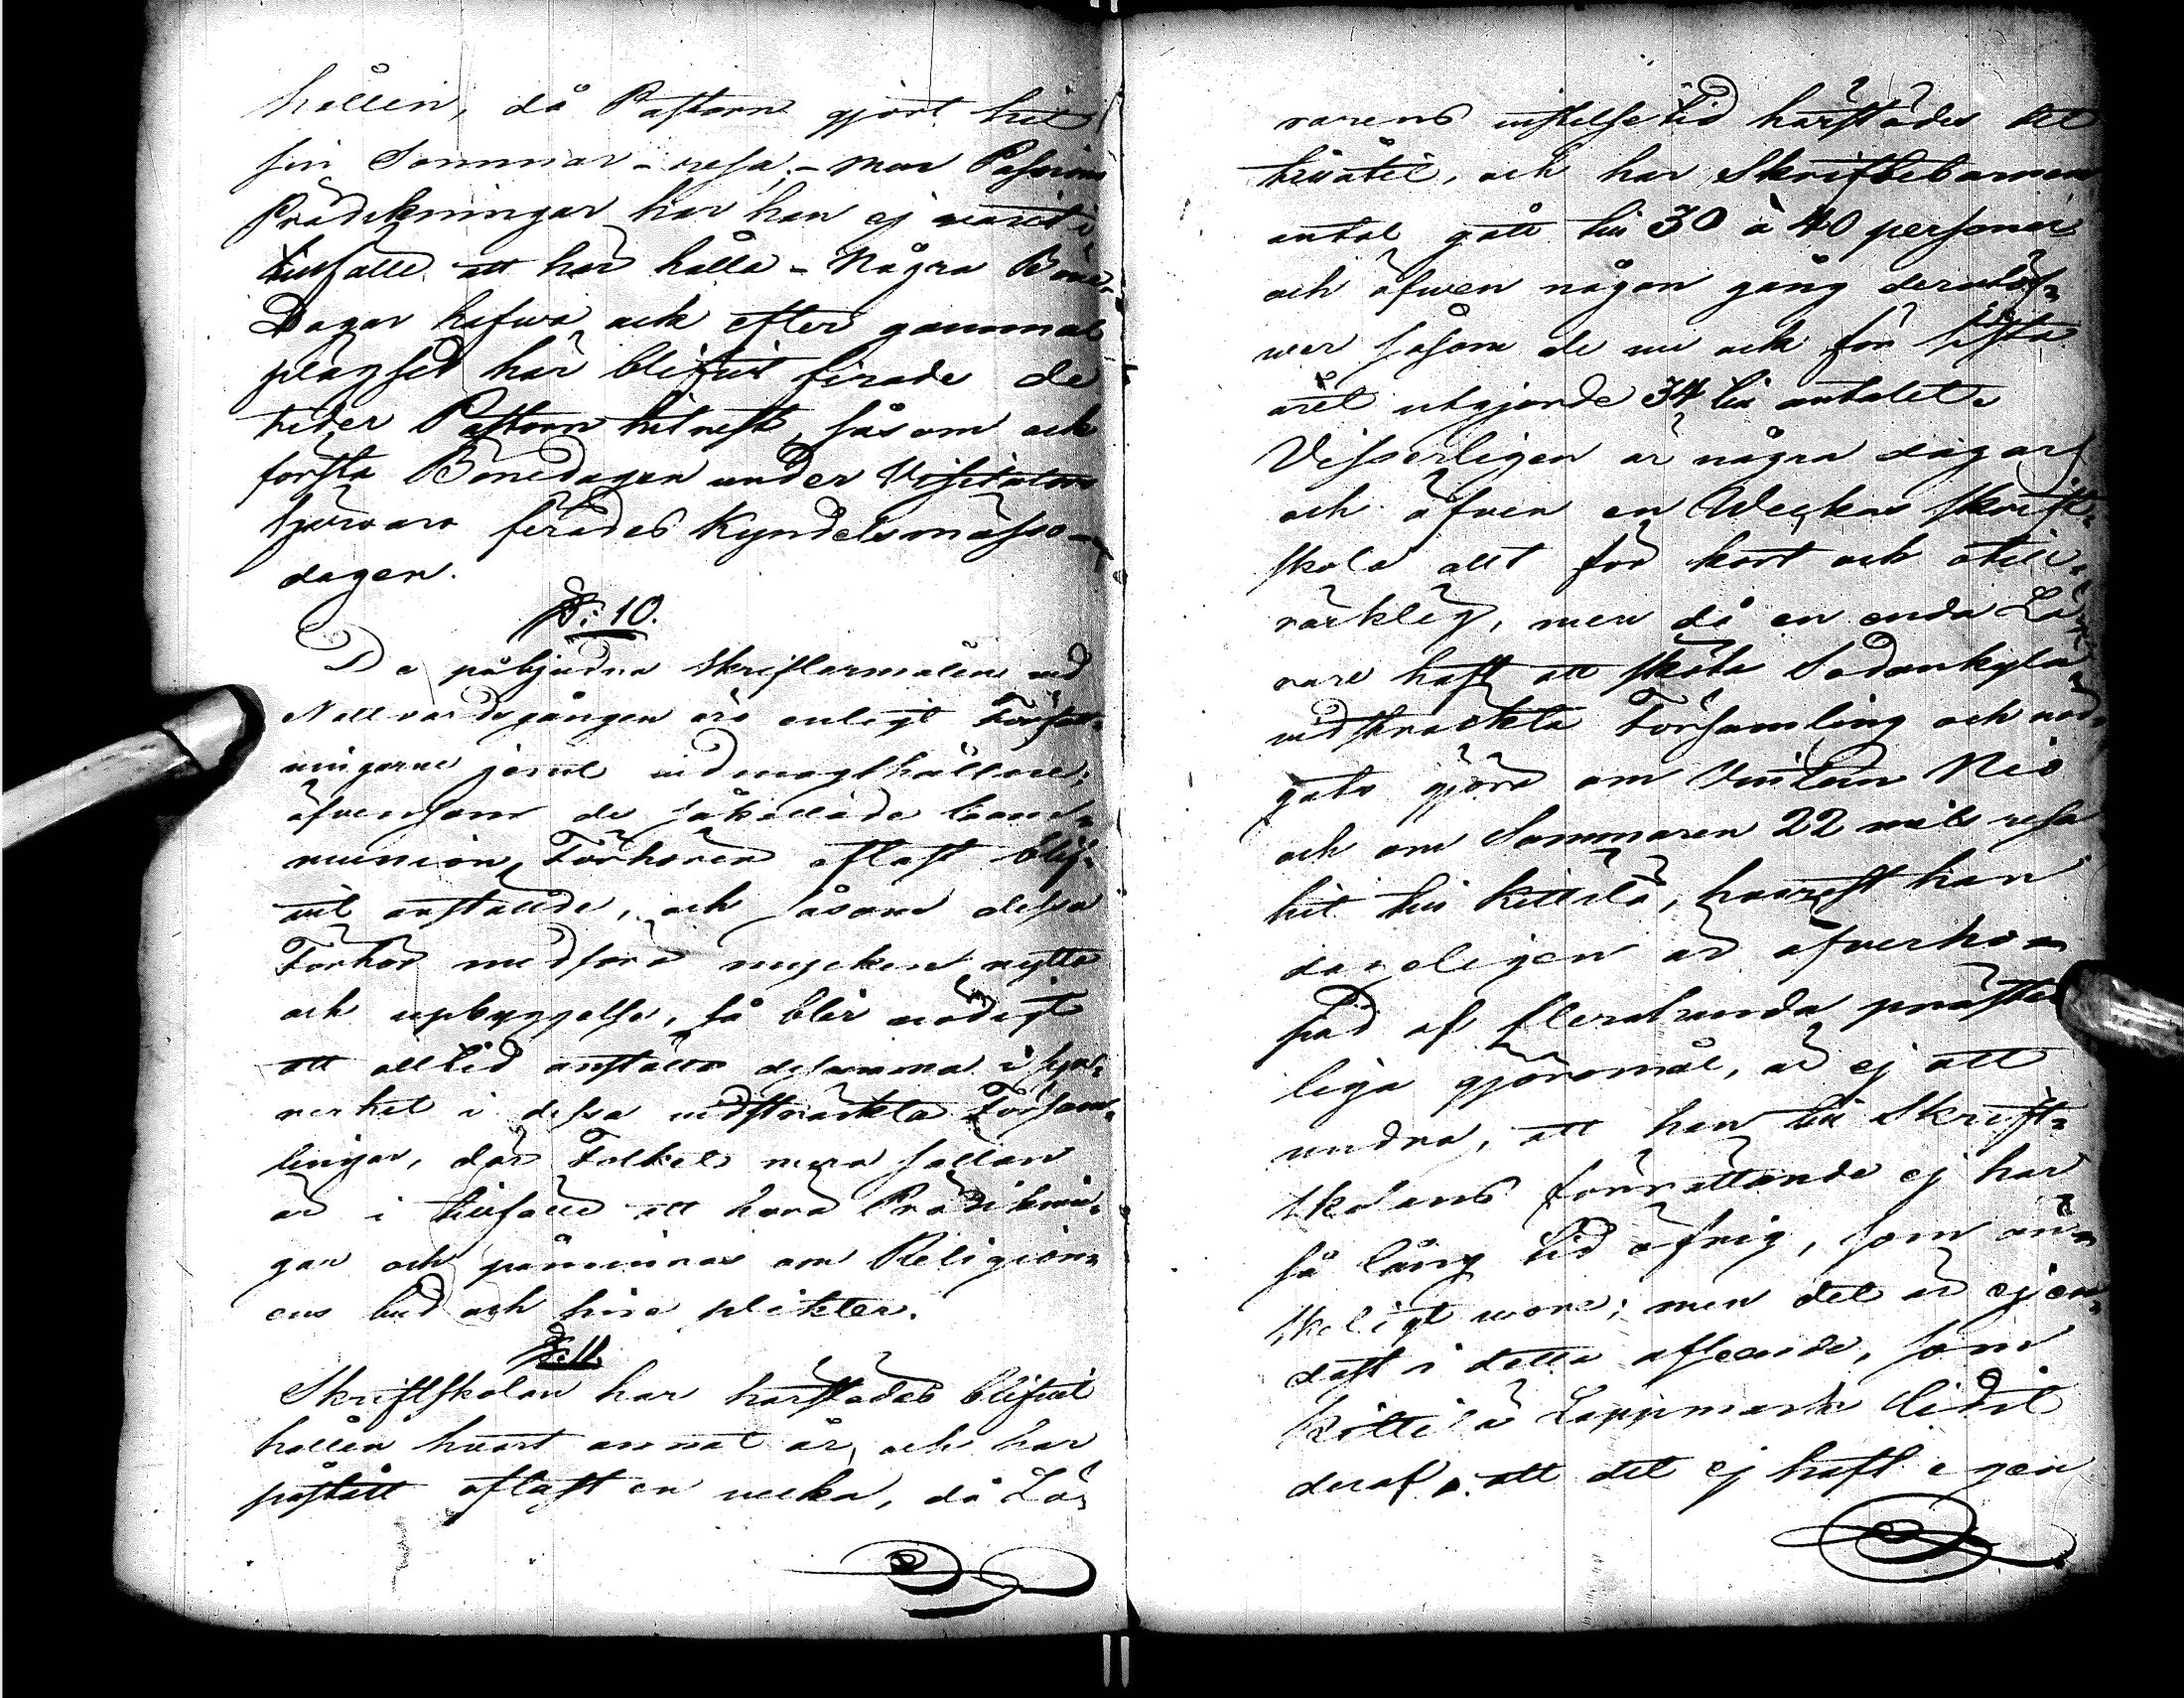 hållen, då Pastorn gjort hit
sin Sommar-resa; - men Passions
Prädikningar har han ej varit i
tillfälle att här hålla - Några Böne-
Dagar hafva ock efter gammal
plägsed här blifvit firade de
tider Pastorn hitrest, såsom ock
första Bönedagen under Visitators
härvaro firades Kyndelsmässo-
dagen.
§. 10.
De påbjudna Skriftermålen vid
Nattvardsgången äro enligt Författ-
ningarne jemt vidmagthållne;
äfvensom de så kallade Com-
munion Förhören oftast blif-
vit anstälde, och såsom dessa
Förhör medföra mycken nytta
och upbyggelse, så blir nödigt
att alltid anställa desamma i syn-
nerhet i dessa vidsträckta Försam-
lingar, där Folket mera sällan
är i tillfälle att höra Prädiknin-
gar och påminnas om Religion-
ens bud och sina plikter.
§. 11.
Skriftskolan har härstädes blifvit
hållen hvart annat år, och har
påstått oftast en vecka, då Lä-
rarens vistelse tid härstädes det
tillåtit, och har Skriftebarnens
antal gått till 30 à 40 personer
och äfwen någon gång derutöf-
wer såsom de nu ock för sista
året utgjorde 34 till antalet.
Visserligen är några dagars
och äfven en Weckas skrift-
skola allt för kort och otill-
räcklig, men då en enda Lä-
rare haft att sköta Sodankylä
vidsträckta Församling och nöd-
gats göra om Vintern Nio
och om Sommaren 22 mils resa
hit till Kittilä, hvarest han
dageligen är öfverhop-
pad af flerahanda präster-
liga gjöromål, är ej att
undra, att han till Skrift-
skolans förrättande ej har
så lång tid öfrig, som ön-
skeligt vore; men det är ej en-
dast i detta afseende, som
Kittilä Lappmark lidit
deraf, att det ej haft egen